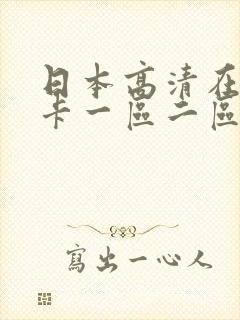 日本高清在
卡一區二區
寫出一心人